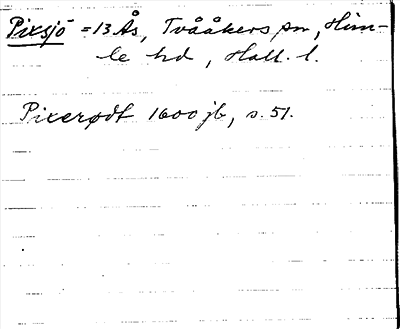 Pixsjö = 13 Ås, Tvååkers sn, Him-
le hd, Hall. l.
Pixerødt 1600 jb, s. 51.